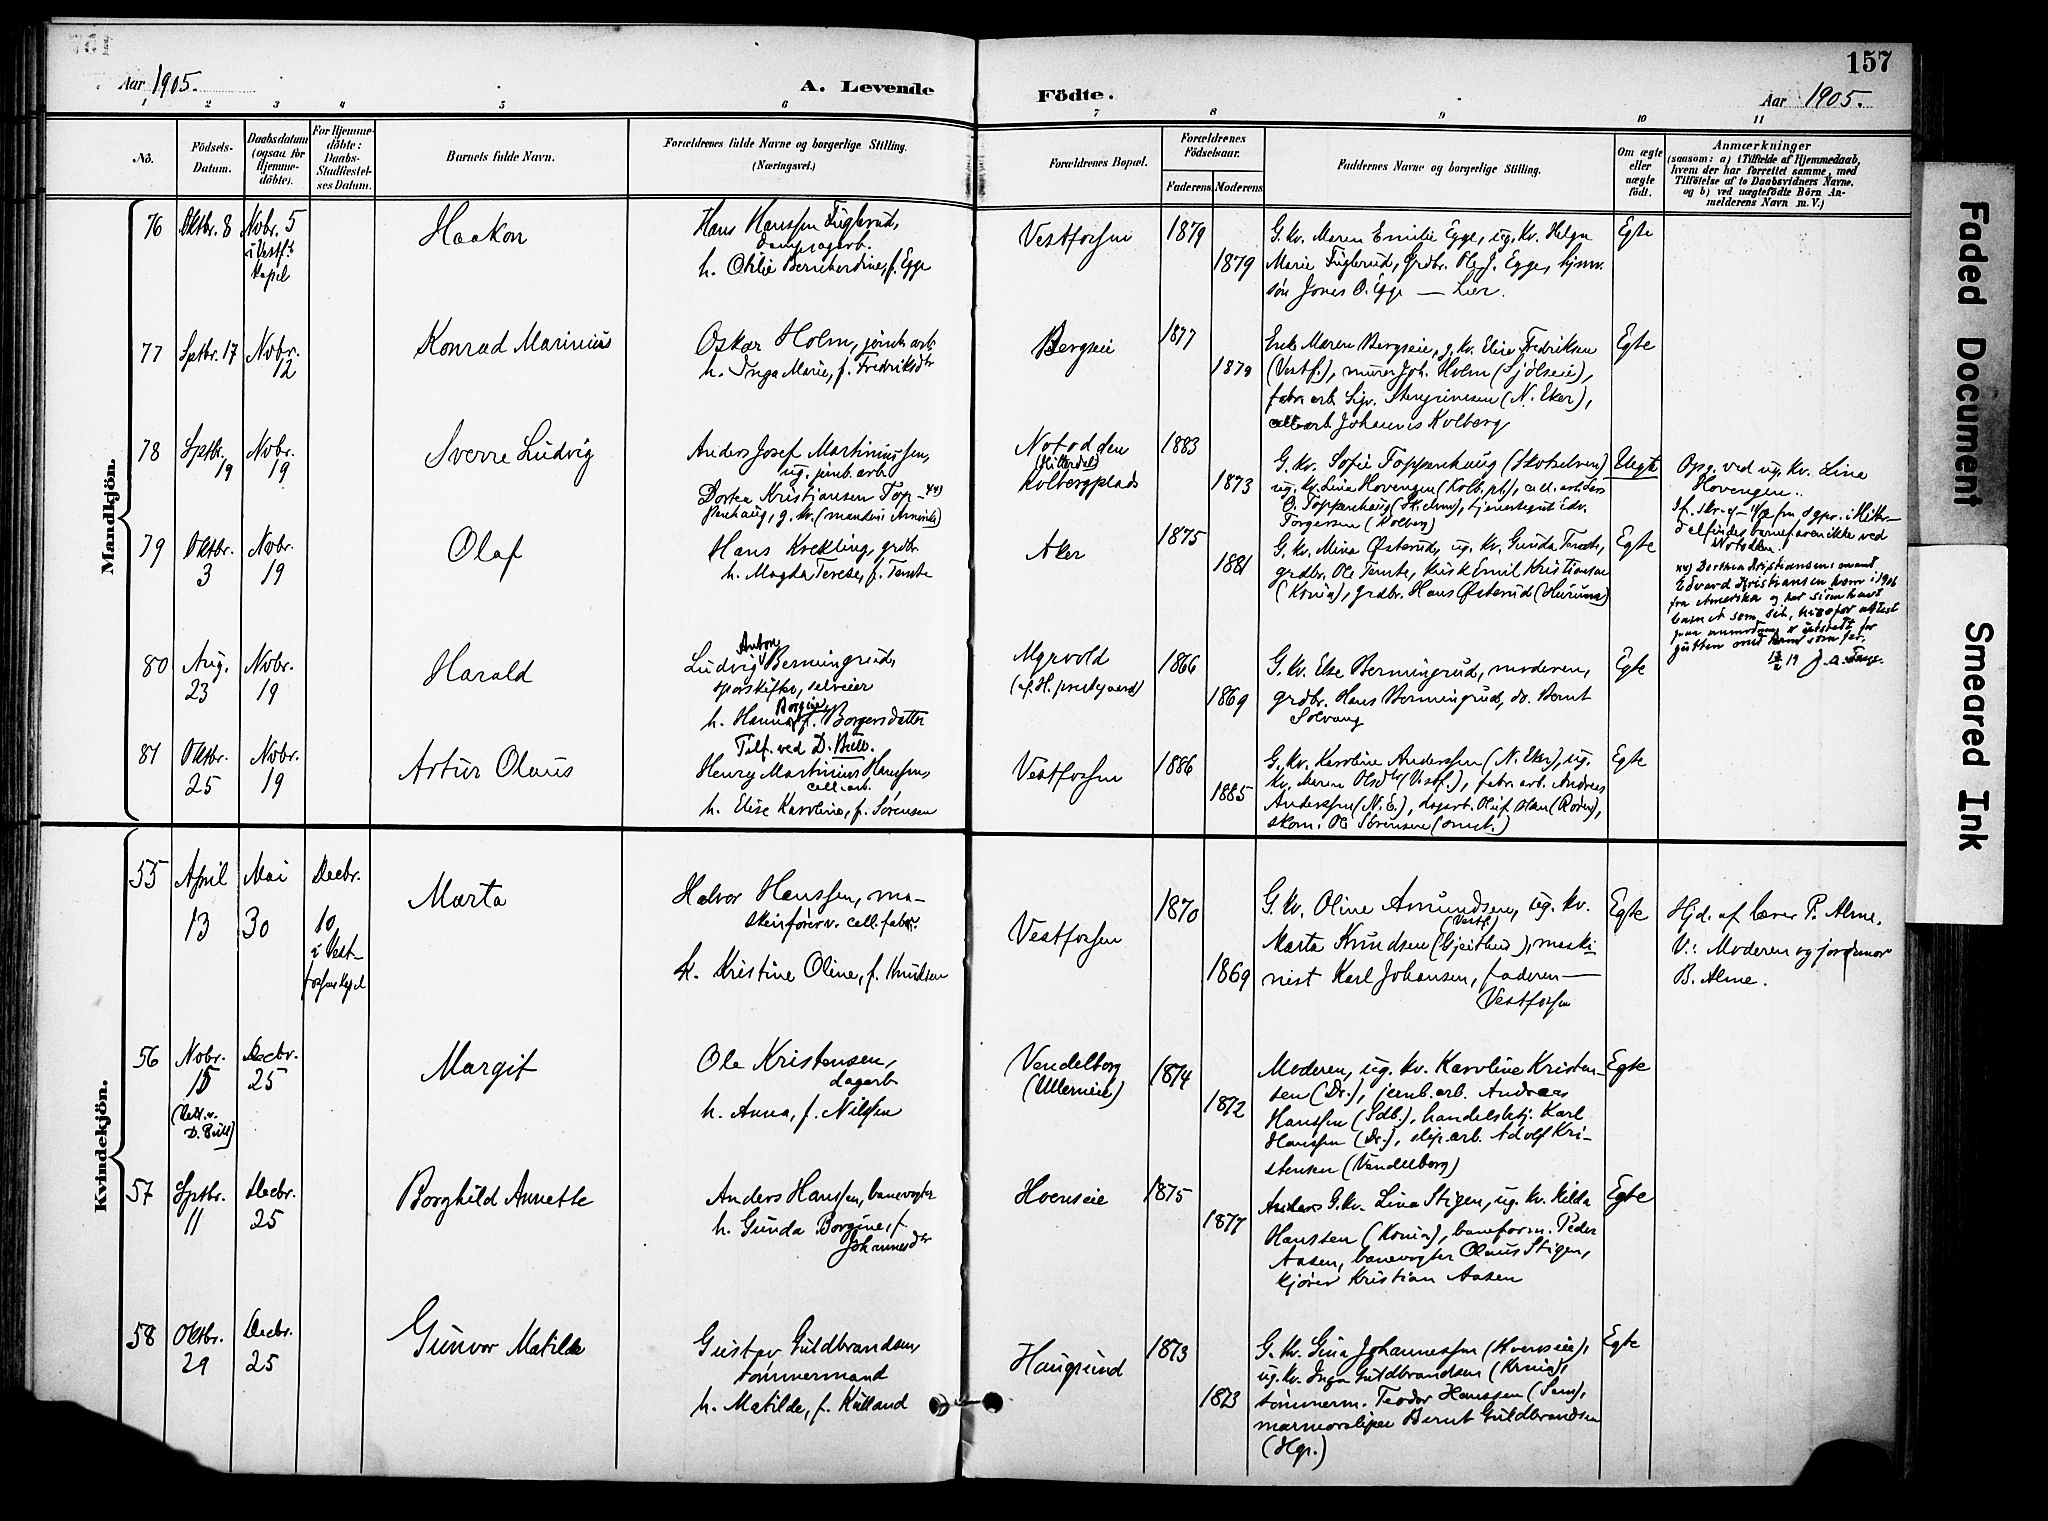 157
Aar 1905.
A. Levende
Födte.
Aar 1905.
1 2 3 4 5 6 7 8 9 10 11
No.
Födsels-
Datum.
Daabsdatum
(ogsaa for
Hjemme-
döbte).
For Hjemme-
döbte:
Daabs-
Stadfæstel-
ses Datum.
Barnets fulde Navn.
Forældrenes fulde Navne og borgerlige Stilling.
(Næringsvei.)
Forældrenes Bopæl.
Forældrenes
Födselsaar.
Faderens.
Moderens.
Faddernes Navne og borgerlige Stilling.
Om ægte
eller
uægte
födt.
Anmærkninger
(saasom: a) i Tilfælde af Hjemmedaab,
hvem der har forrettet samme, med
Tilföielse af to Daabsvidners Navne,
og b) ved uægtefödte Börn An-
melderens Navn m. V.)
Mandkjön.
76
Oktbr. 8
Novbr. 5
i Vestf.
kapel
Haakon
Hans Hanssen Fuglerud,
dampsagarb.
h. Otilie Bernhardine, f. Egge
Vestfossen
1879
1879
G. kv. Maren Emilie Egge, ug. kv. Helga
Marie Fuglerud, Grdbr. Ole J. Egge, hjmv.
søn Jones O. Egge — Lier.
Egte
77
Septbr. 17
Novbr.
12
Konrad Marinius
Oskar Holm, jernb. arb.
h. Inga Marie, f. Fredriksdtr
Bergseie
1877
1879
Enke Maren Bergseie, g. kv. Elise Fredriksen
(Vestf.), murer Joh. Holm (Sjølseie),
fabr. arb. Sigv. Stengrimsen (N. Eker),
cell. arb. Johannes Kolberg
Egte
78
Septbr.
19
Novbr.
19
Sverre Ludvig
Anders Josef Martiniussen,
ug. jernb. arb.
Dortea Kristiansen Top-
penhaug, g. kv. (manden i Amerika)
Notodden
(Hitterdal)
Kolbergplads
1883
1873
G. kv. Sofie Toppenhaug (Skotselven)
ug. kv. Lina Hovengen (Kolb. pl.), cell. arb. Lars
O. Toppenhaug (Sk. elven), tjenestegut Edv.
Torgersen (Kolberg)
Uegte
Opg. ved ug. kv. Lina
Hovengen.
If. skr. fra sgpr. i Hitter-
dal findes barnefaren ikke ved
Notodden.
xx) Dorthea Kristiansens mand
Edvard Kristiansen kom i 1906
fra Amerika og har siden havt
barnet som sit, hvorfor attest
paa anmodning er utstedt for
gutten med ham som far.
13/2 19 J. A. Fange.
79
Oktbr.
3
Novbr.
19
Olaf
Hans Krekling, grdbr.
h. Magda Terese, f. Temte
Aker
1875
1881
G. kv. Mina Østerud, ug. kv. Gunda Temte,
grdbr. Ole Temte, kusk Emil Kristiansen
(Kr.nia), grdbr. Hans Østerud (Hurum)
Egte
80
Aug.
23
Novbr.
19
Harald
Anton
Ludvig Bermingrud,
sporskifter, selveier
Borgine
h. Hanna, f. Borgersdatter
Myrvold
(af H. prestegaard)
1866
1869
G. kv. Else Bermingrud, moderen,
grdbr. Hans Bermingrud, do. Bernt
Solvang
Egte
81
Oktbr.
25
Novbr.
19
Artur Olaus
Tilf. ved D. Bull.
Henry Martinius Hanssen,
cell. arb.
h. Elise Karoline, f. Sørensen
Vestfossen
1886
1885
G. kv. Karoline Anderssen (N. Eker), ug.
kv. Maren Olsdtr (Vestf.), fabr. arb. Andreas
Anderssen (N. E.), dagarb. Oluf Olsen (Roden),
skom. Ole Sørensen (omst.)
Egte
Kvindekjön.
55
April
13
Mai
30
Decbr.
10
i Vest-
fossens kapel
Marta
Halvor Hanssen, ma-
skinfører v. cell. fabr.
h. Kristine Oline, f. Knudsen
Vestfossen
1870
1869
G. kv. Oline Amundsen, ug. kv.
(Vestf.)
Marta Knudsen (Gjeithus), maski-
nist Karl Johansen, faderen —
Vestfossen
Egte
Hjd. af lærer P. Alme.
V.: Moderen og jordmor
B. Alme.
56
Novbr.
15
D. Bull)
Decbr.
25
Margit
Ole Kristensen,
dagarb.
h. Anna, f. Nilsen
Vendelborg
(Ullerneie)
1874
1872
Moderen, ug. kv. Karoline Kristen-
sen (Dr.), jernb. arb. Andreas
Hanssen (Sdb.), handelsbtj. Karl
Hanssen (Dr.), slip. arb. Adolf Kri-
stensen (Vendelborg)
Egte
57
Septbr.
11
Decbr.
25
Borghild Annette
Anders Hanssen, banevogter
h. Gunda Borgine, f.
Johannesdtr
Hoenseie
1875
1877
G. kv. Lina Stigen, ug. kv. Hilda
Hanssen (Kr.nia), baneform. Peder
Aasen, banevogter Olaus Stigen,
kjører Kristian Aasen
Egte
58
Oktbr.
29
Decbr.
25
Gunvor Matilde
Gustav Guldbrandsen,
tømmermand
h. Matilde, f. Kulland
Haugsund
1873
1873
G. kv. Gina Johannessen (Hoenseie),
ug. kv. Inga Guldbrandsen (Kr.nia),
tømmerm. Teodor Hanssen (Sem),
marmorsliper Bernt Guldbrandsen
(Hgs.)
Egte
Faded Document
Smeared Ink